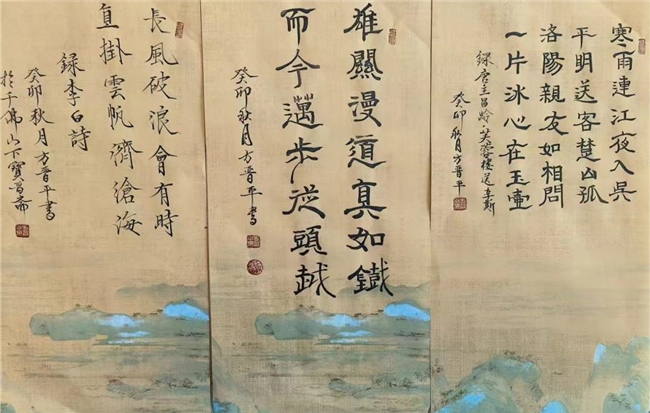 寒雨連江夜入吳
平明送客楚山孤
洛陽親友如相問
一片冰心在玉壺
録唐王昌齡芙蓉樓送辛漸
癸卯秋月方晉平
雄關漫道真如鐵
而今邁步從頭越
癸卯秋月方晉平書
長風破浪會有時
直掛雲帆濟滄海
録李白詩
癸卯秋月方晉平書
於千佛山下寶齋